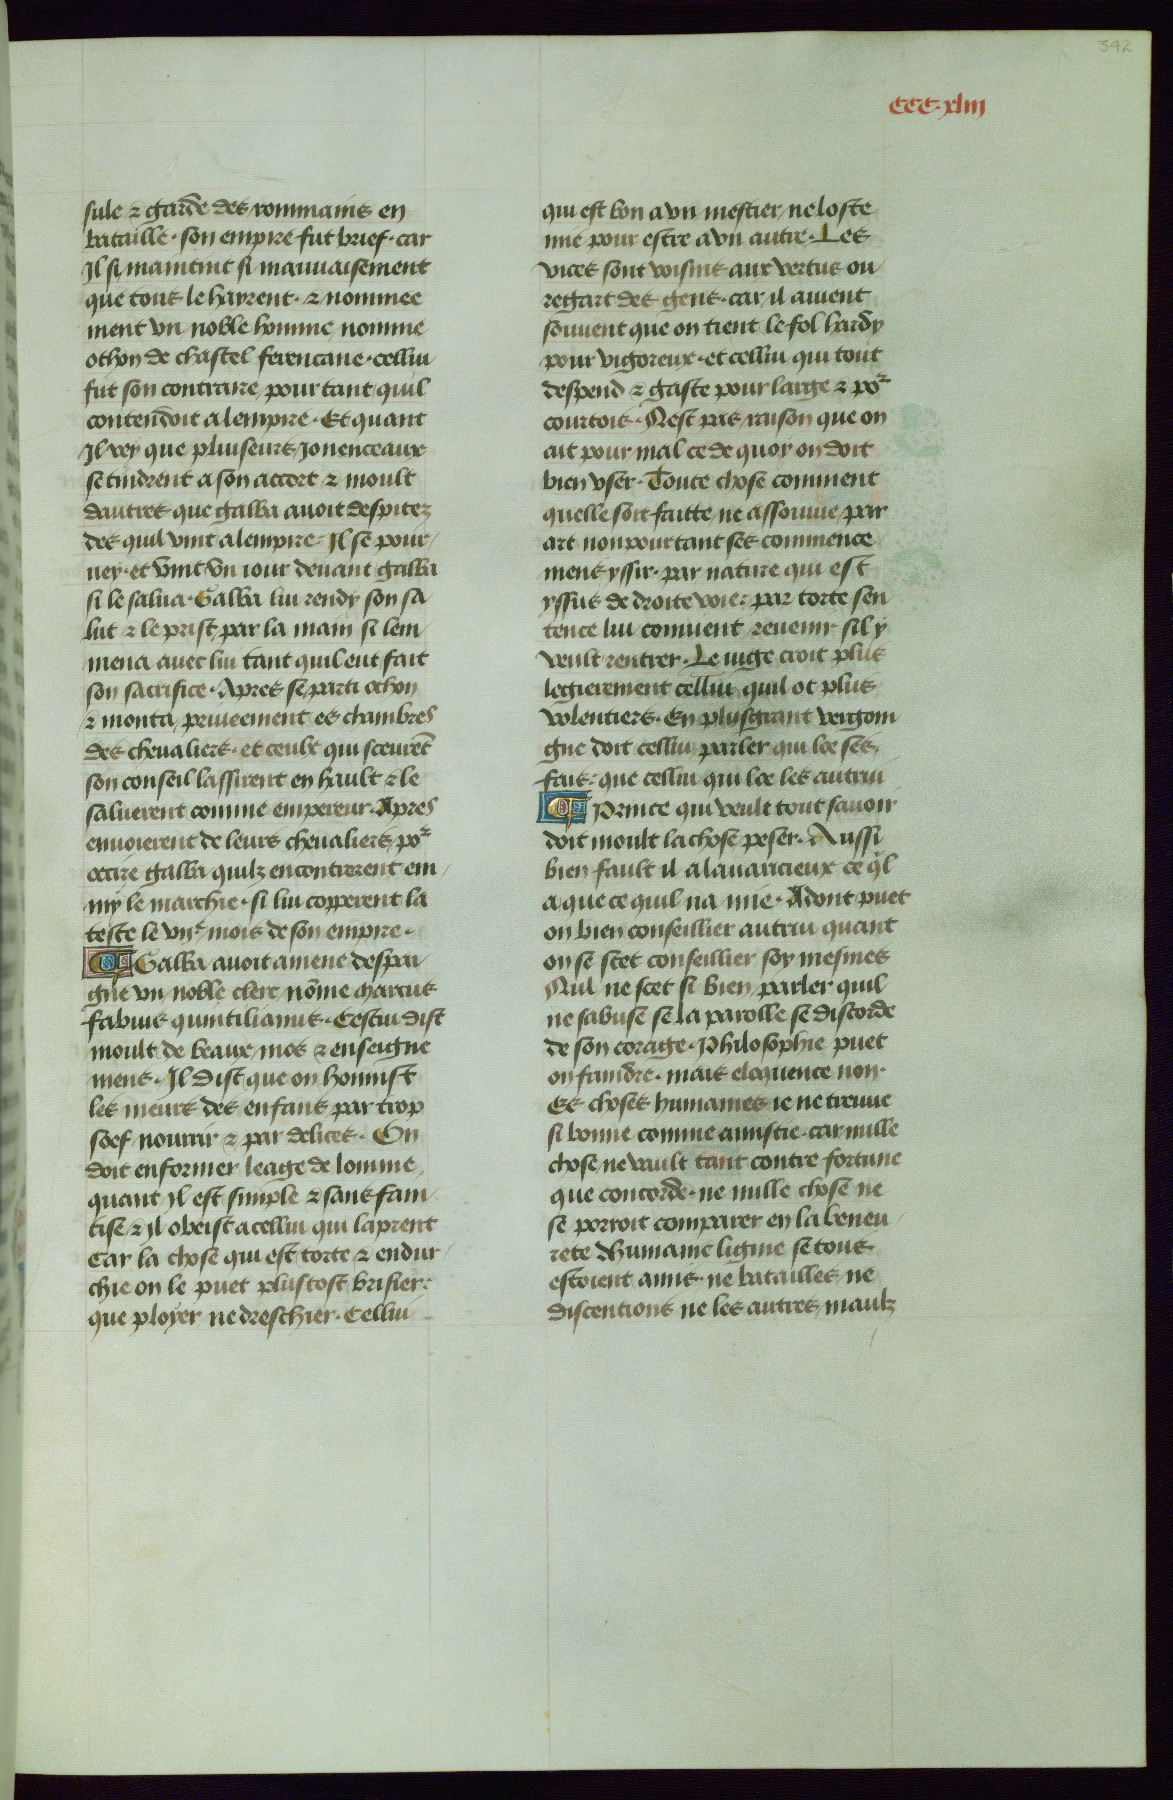 342
CCC.xliii
sule ⁊ garde des rommains en
bataille. son empire fut brief. car
Il si maintint si mauuaisement
que tous le hayrent. ⁊ nommee
ment vn noble homme nomme
othon de chastel ferencane. cellui
fut son contraire pour tant quil
contendoit a lempire. Et quant
Il vey que pluiseurs Jouenceaux
se tindrent a son accort ⁊ moult
dautres que galba auoit despitez
des quil vint a lempire. Il se pour
uey. et vint vn iour deuant galba
si le salua. Galba lui rendy son sa
lut ⁊ le prist par la main si lem
mena auec lui tant quil eut fait
son sacrifice. Apres se parti othon
⁊ monta priueement es chambres
des cheualiers. et ceulx qui sceurẽt
son conseil lassirent en hault ⁊ le
saluerent comme empereur. Apres
enuoierent de leurs cheualiers poʳ
occire galba quilz encontrerent em
my le marchie. si lui copperent la
teste le viiᵉ mois de son empire.
Galba auoit amene despai
gne vn noble clerc nõme marcus
fabius quintilianus. Cestui dist
moult de beaux mos ⁊ enseigne
mens. Il dist que on honnist
les meurs des enfans par trop
soef nourrir ⁊ par delices. On
doit enformer leage de lomme
quant Il est simple ⁊ sans fain
tise ⁊ Il obeist a cellui qui laprent
Car la chose qui est torte ⁊ endur
chie on le puet plustost brisier
que ployer ne dreschier. Cellui
qui est bon a vn mestier ne loste
mie pour estre a vn autre. Les
vices sont voisins aux vertus ou
regart des gens. car il auient
souuent que on tient le fol hardy
pour vigoreux. et cellui qui tout
despend ⁊ gaste pour large ⁊ poʳ
courtois. Nest pas raison que on
ait pour mal ce de quoy on doit
bien vser. Toute chose comment
quelle soit faitte ne assouuie par
art nonpourtant ses commence
mens yssir. par nature qui est
yssus de droite voie: par torte sen
tence lui conuient reuenir sil y
veult rentrer. Le iuge croit plus
legierement cellui quil ot plus
volentiers. En plusgrant vergoin
gne doit cellui parler qui loe ses
fais: que cellui qui loe les autrui
Prince qui veult tout sauoir
doit moult la chose peser. Aussi
bien fault il a lauaricieux ce q̃l
a que ce quil na mie. Adont puet
on bien conseillier autrui quant
on se scet conseillier soy mesmes
Nul ne scet si bien parler quil
ne sabuse se la parolle se discorde
de son corage. Philosophie puet
on faindre. mais eloquence non.
Es choses humaines ie ne treuue
si bonne comme amistie. car nulle
chose ne vault tant contre fortune
que concorde. ne nulle chose ne
se porroit comparer en la beneu
rete dhumaine ligne se tous
estoient amis. ne batailles ne
discentions ne les autres maulz